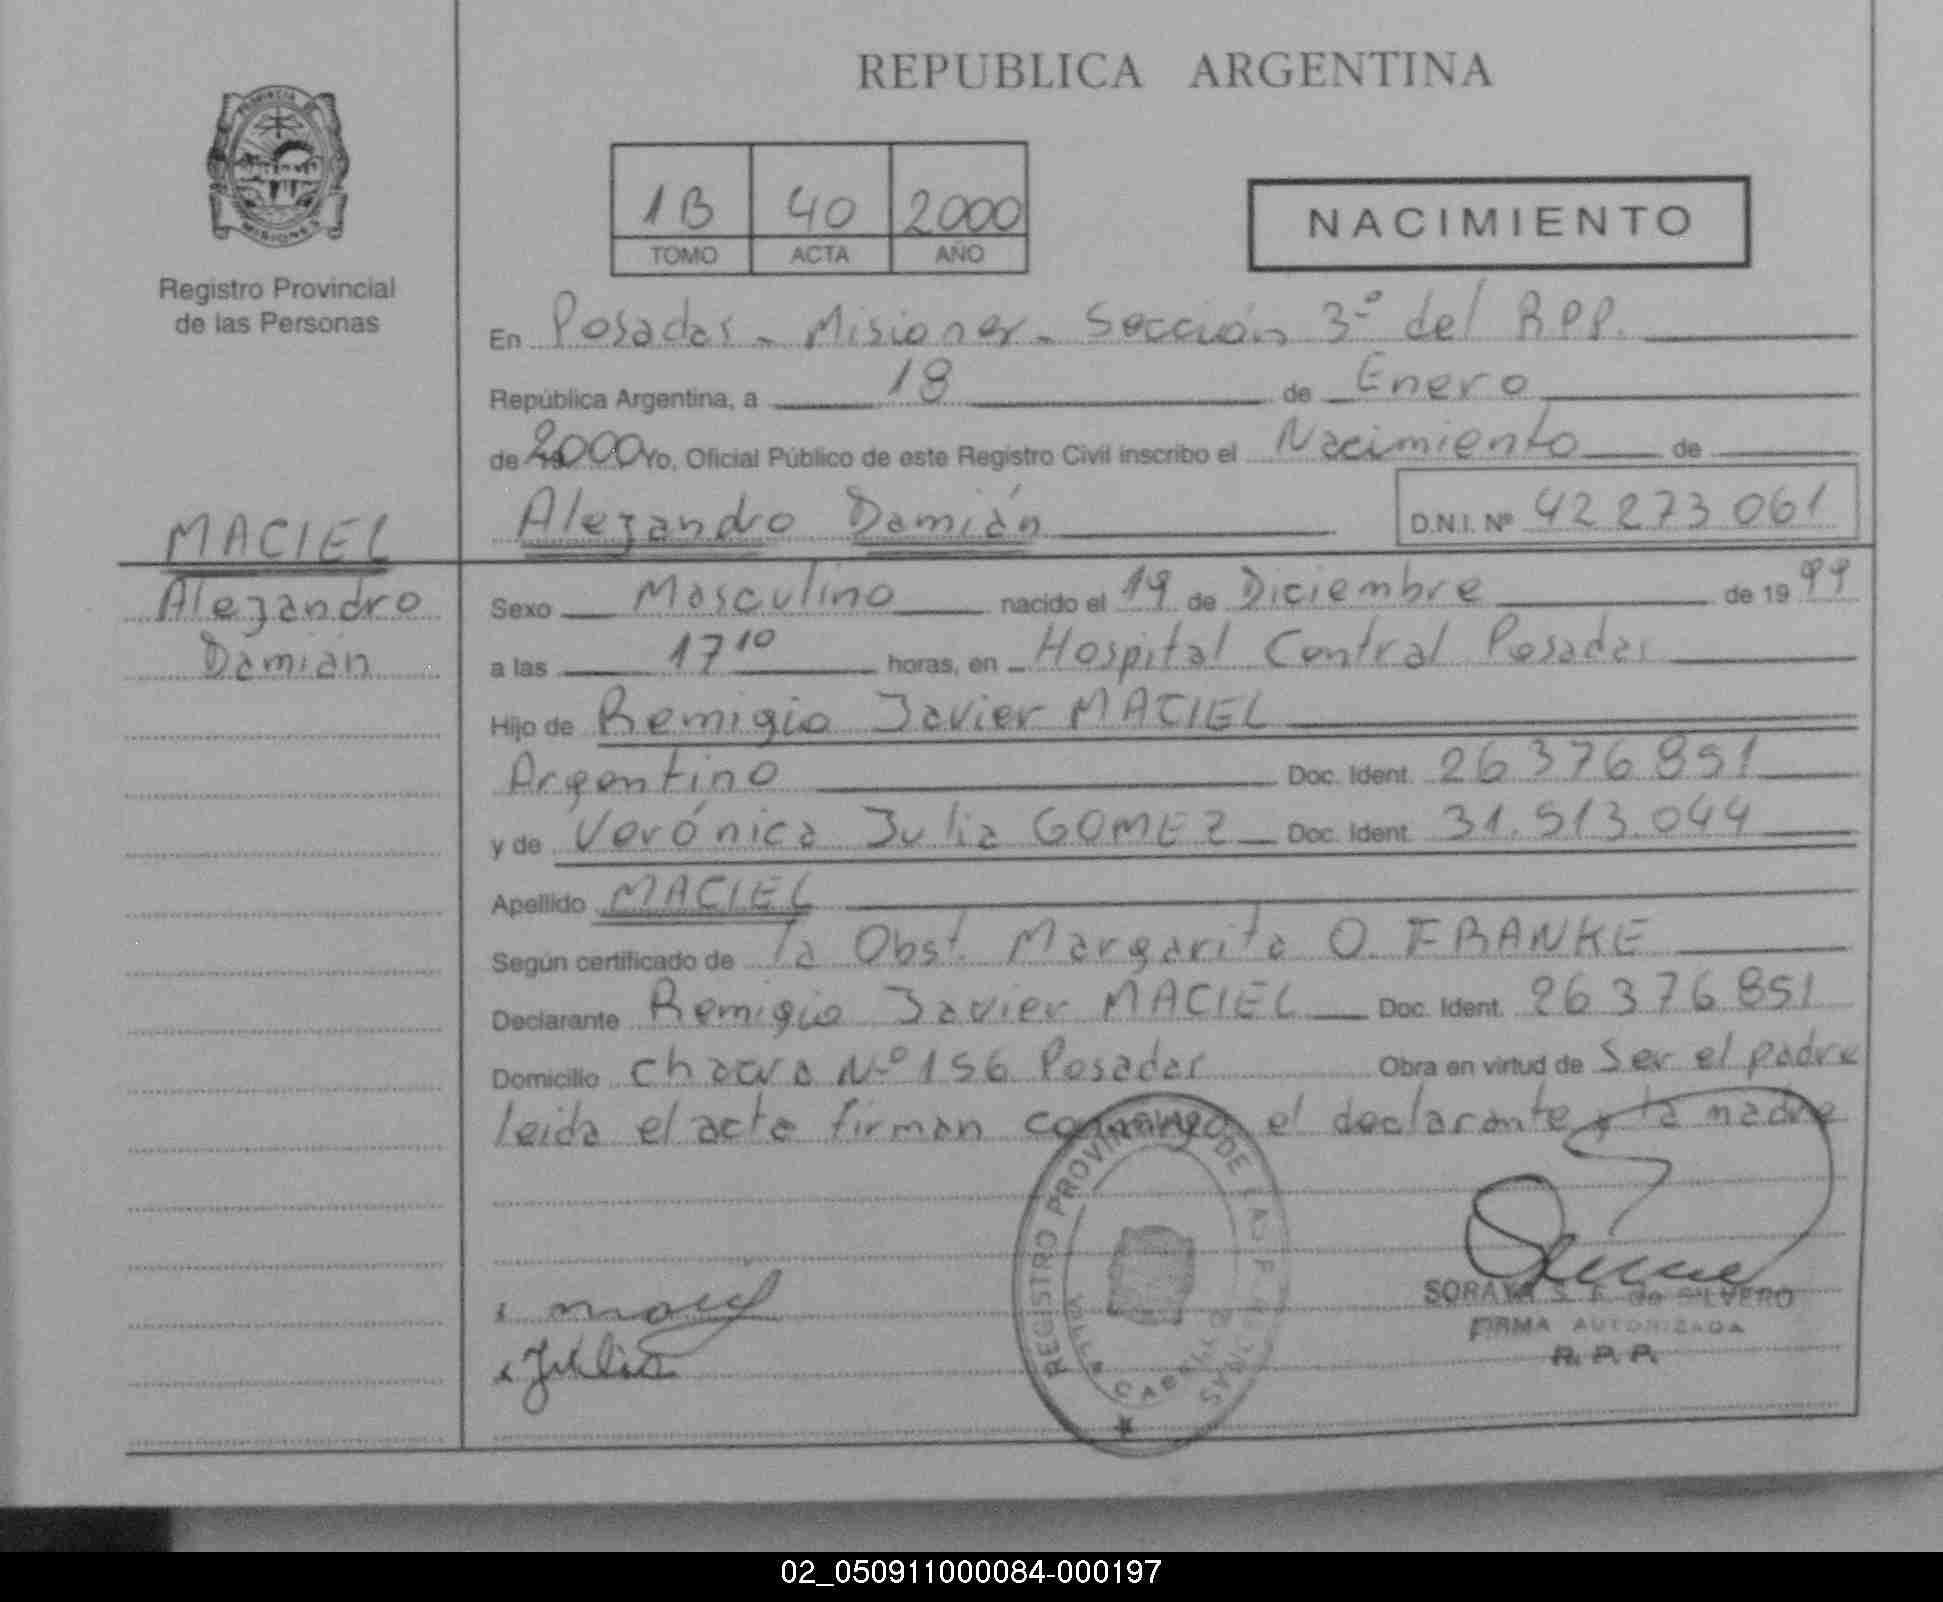 REPUBLICA ARGENTINA
PROVINCIA DE
MISIONES
Registro Provincial
de las Personas
1B 40 2000
TOMO ACTA AÑO
NACIMIENTO
En Posadas - Misiones - Sección 3º del R.P.P.
República Argentina, a 18 de Enero
de 2000 Yo, Oficial Público de este Registro Civil inscribo el Nacimiento de
Alejandro Damián D.N.I. Nº 42 273 061
MACIEL
Alejandro
Damián
Sexo Masculino nacido el 19 de Diciembre de 19 99
a las 17 10 horas, en Hospital Central Posadas
Hijo de Remigio Javier MACIEL
Argentino Doc. Ident. 26 376 851
y de Verónica Julia GOMEZ Doc. Ident. 31.513.044
Apellido MACIEL
Según certificado de la Obst. Margarita O. FRANKE
Declarante Remigio Javier MACIEL Doc. Ident. 26 376 851
Domicilio chacra Nº 156 Posadas Obra en virtud de Ser el padre
leida el acta firman conmigo el declarante y la madre
REGISTRO PROVINCIAL DE LAS PERSONAS
VILLA CABELLO
Julia
SORAYA S. F. de SILVERO
FIRMA AUTORIZADA
R. P. P.
02_050911000084-000197